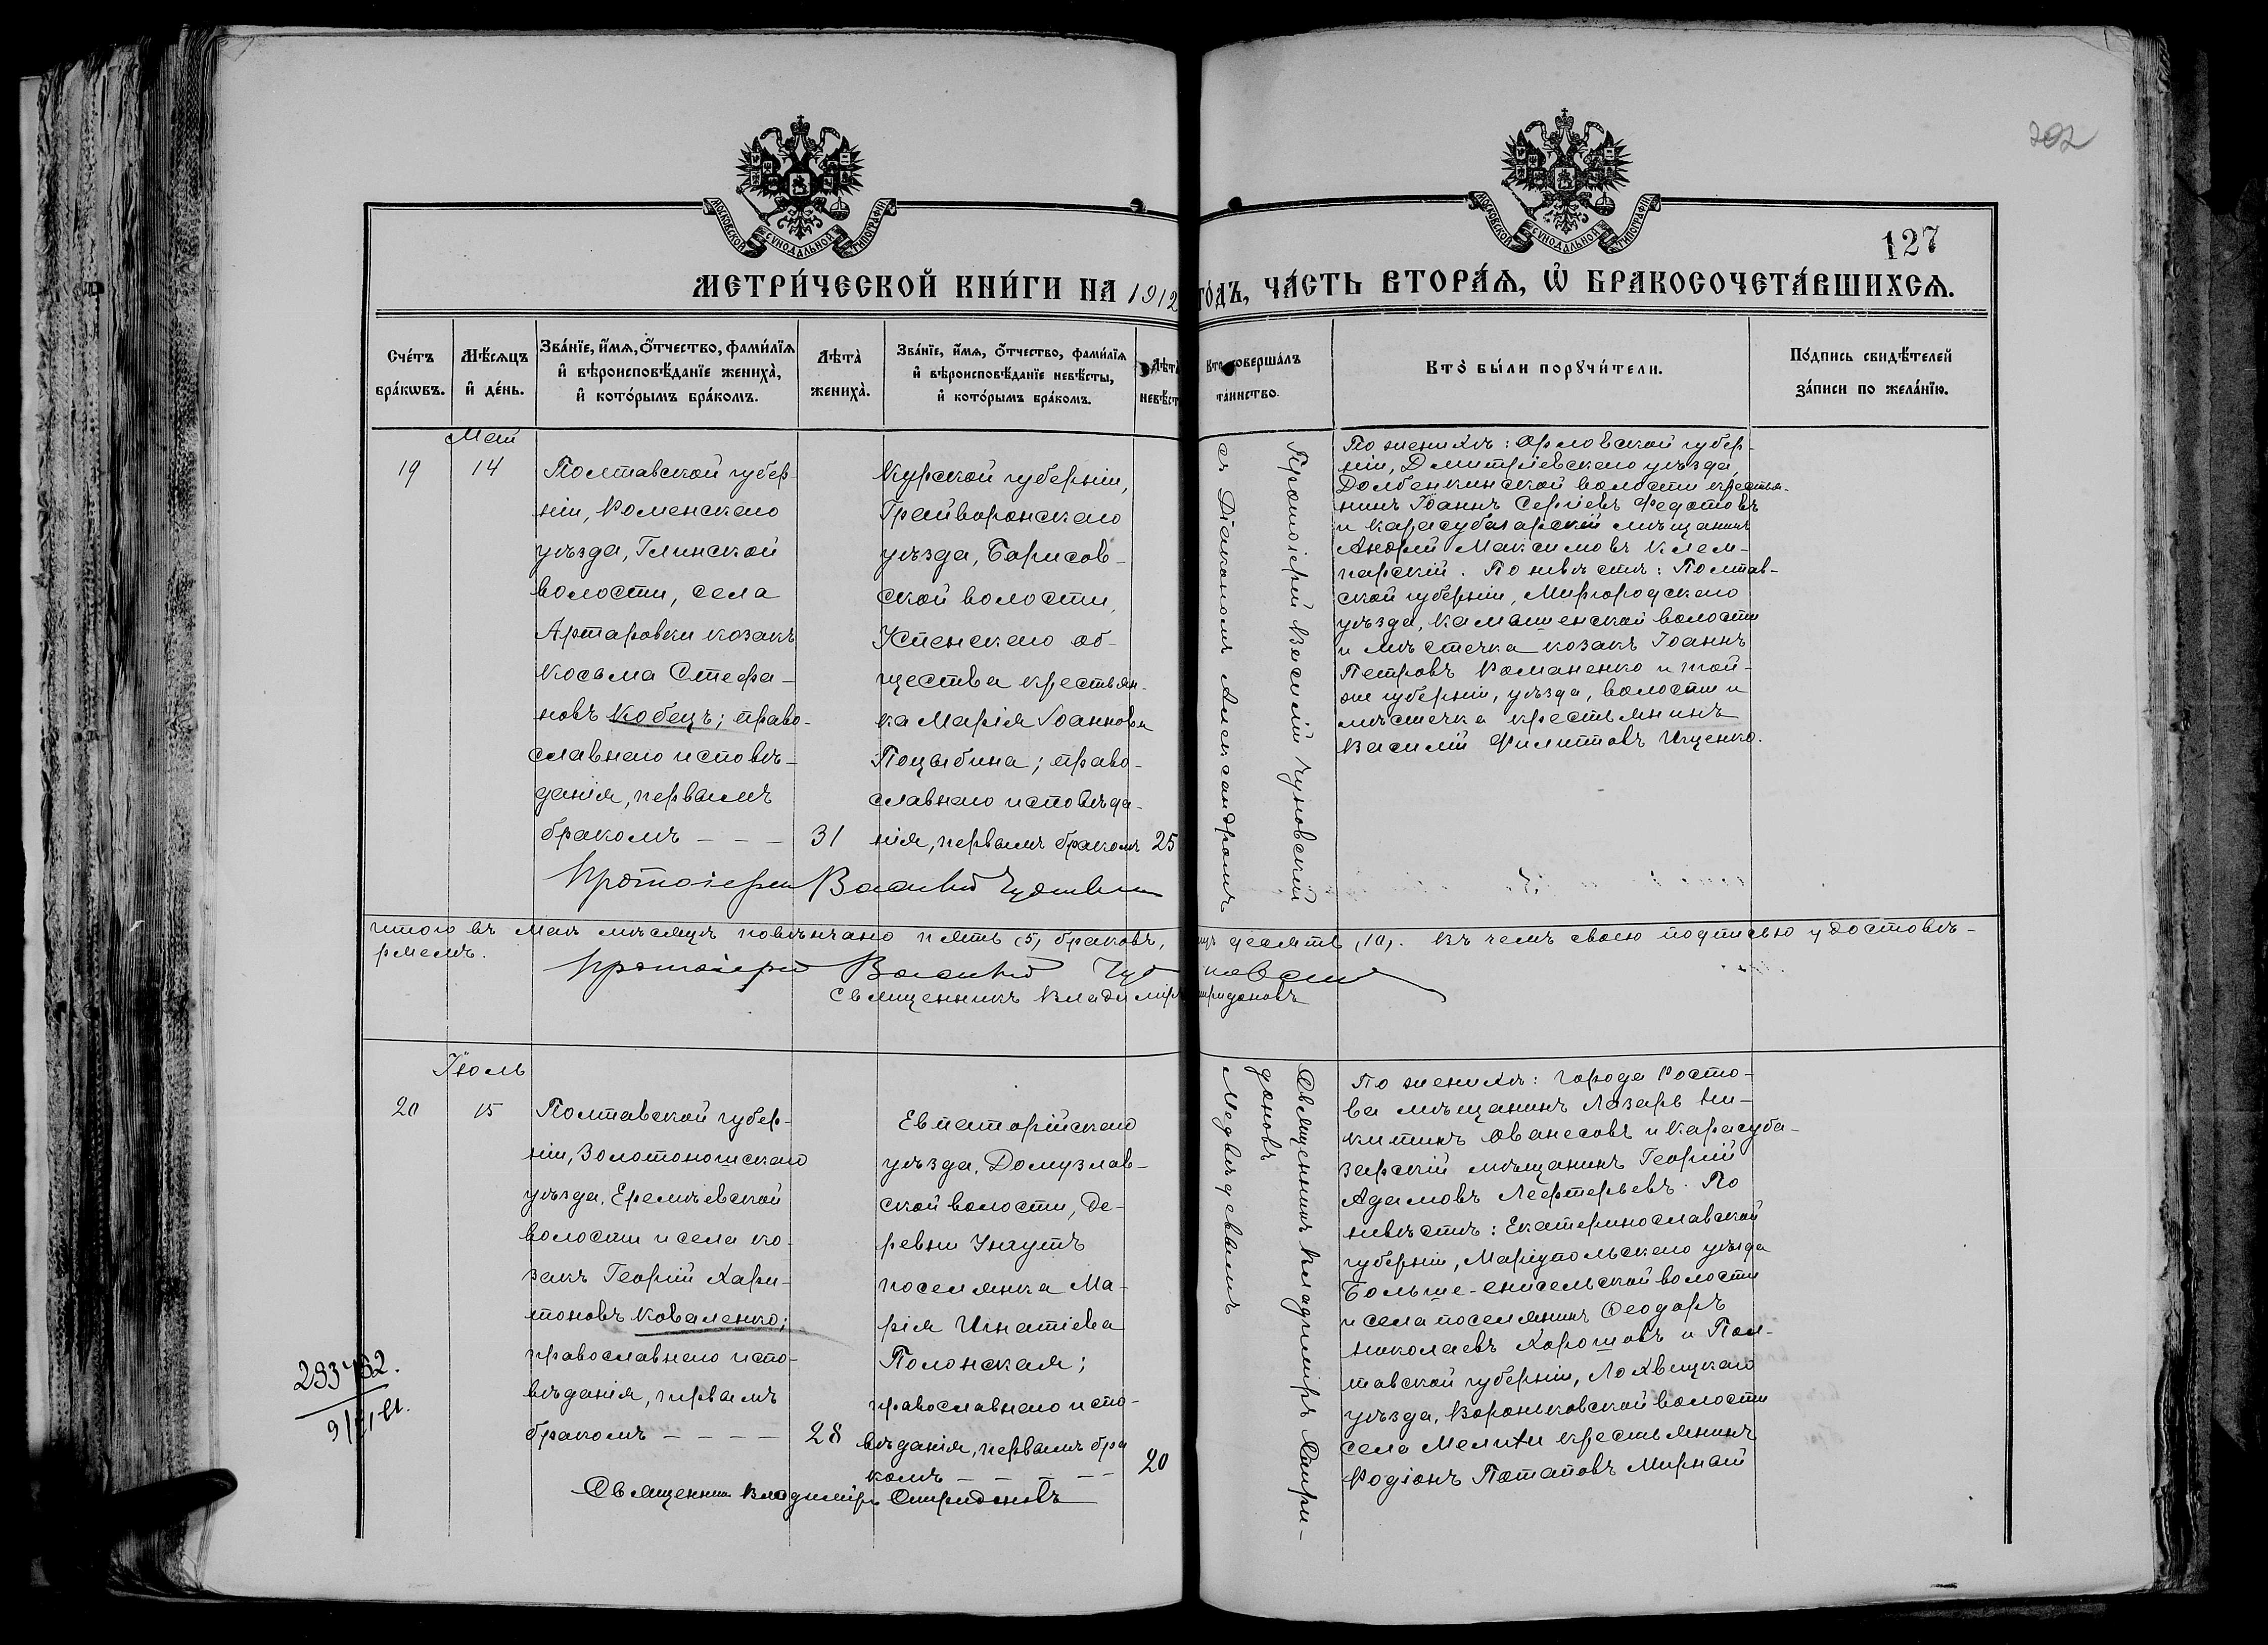 202
МОСКОВСКОЙ СѴНОДАЛЬНОЙ ТИПОГРАФІИ
МОСКОВСКОЙ СѴНОДАЛЬНОЙ ТИПОГРАФІИ
127
МЕТРИ́ЧЕСКОЙ КНИ́ГИ НА 1912 ГО́ДЪ, ЧА́СТЬ ВТОРА́Я, Ѡ҆ БРАКОСОЧЕТА́ВШИХСѦ.
Сче́тъ
бра́кѡвъ.
Мѣ́сѧцъ
и҆ де́нь.
Зва́нїе, и҆́мѧ, ѻ҆́тчество, фами́лїѧ
и҆ вѣроисповѣ́данїе жениха̀,
и҆ кото́рымъ бра́комъ.
Лѣта̀
жениха̀.
Зва́нїе, и҆́мѧ, ѻ҆́тчество, фами́лїѧ
и҆ вѣроисповѣ́данїе невѣ́сты,
и҆ кото́рымъ бра́комъ.
Лѣта
невѣст
Кто совершалъ
таинство.
Кто̀ бы́ли порꙋчи́тели.
По́дпись свидѣ́телей
за́писи по жела́нїю.
Май
19
14
Полтавской губер
ніи, Роменскаго
уѣзда, Глинской
волости, села
Артаровки козакъ
Косьма Стефа-
новъ Кобецъ; право-
славнаго исповѣ-
данія, первымъ
бракомъ - - -
31
Курской губерніи,
Грайворонскаго
уѣзда, Борисов-
ской волости,
об-
щества крестьян-
ка Марія Іоаннова
Поцыбина; право-
славнаго исповѣда-
нія, первымъ бракомъ
25
Протоіерей Василій
съ Діакономъ Александромъ
По женихѣ: Орловской губер-
ніи, Дмитріевскаго уѣзда,
Долбенкинской волости крестья-
нинъ Іоаннъ Сергіевъ Федотовъ
и Карасубазарскій мѣщанинъ
Андрей Максимовъ Клем-
парскій. По невѣстѣ: Полтав-
ской губерніи, Миргородскаго
уѣзда, Камышенской волости
и мѣстечка козакъ Іоаннъ
Петровъ Романенко и той-
же губерніи, уѣзда, волости и
мѣстечка крестьянинъ
Василій Филипповъ Ищенко.
Протоіерей Василій
Итого въ Маѣ мѣсяцѣ повѣнчано пять (5) браковъ, лицъ десять (10). Въ чемъ своею подписью удостовѣ-
ряемъ.
Протоіерей Василій
Священникъ Владиміръ Спиридоновъ
Іюль
20
15
Полтавской губер-
ніи, Золотоношскаго
уѣзда, Еремѣевской
волости и села ко-
закъ Георгій Хари-
тоновъ Коваленко;
православнаго испо-
вѣданія, первымъ
бракомъ - - - -
28
Евпаторійскаго
уѣзда, Домузлав-
ской волости, де-
ревни Унгутъ
поселянка Ма-
рія Игнатіева
Полонская;
православнаго испо-
вѣданія, первымъ бра
комъ - - - -
20
Священникъ Владиміръ Спири-
доновъ
Медвѣдевымъ
По женихѣ: города Росто-
ва мѣщанинъ Лазарь Ни-
китинъ Ованесовъ и Карасуба-
зарскій мѣщанинъ Георгій
Адамовъ Лефтерьевъ. По
невѣстѣ: Екатеринославской
губерніи, Маріупольскаго уѣзда
Больше-Енисельской волости
и села поселянинъ Ѳеодоръ
Николаевъ Хорошовъ и Пол-
тавской губерніи, Лохвицкаго
уѣзда, Вороньковской волости
села Мелихи крестьянинъ
Родіонъ Потаповъ Мирный
Священникъ Владиміръ Спиридоновъ
293432.